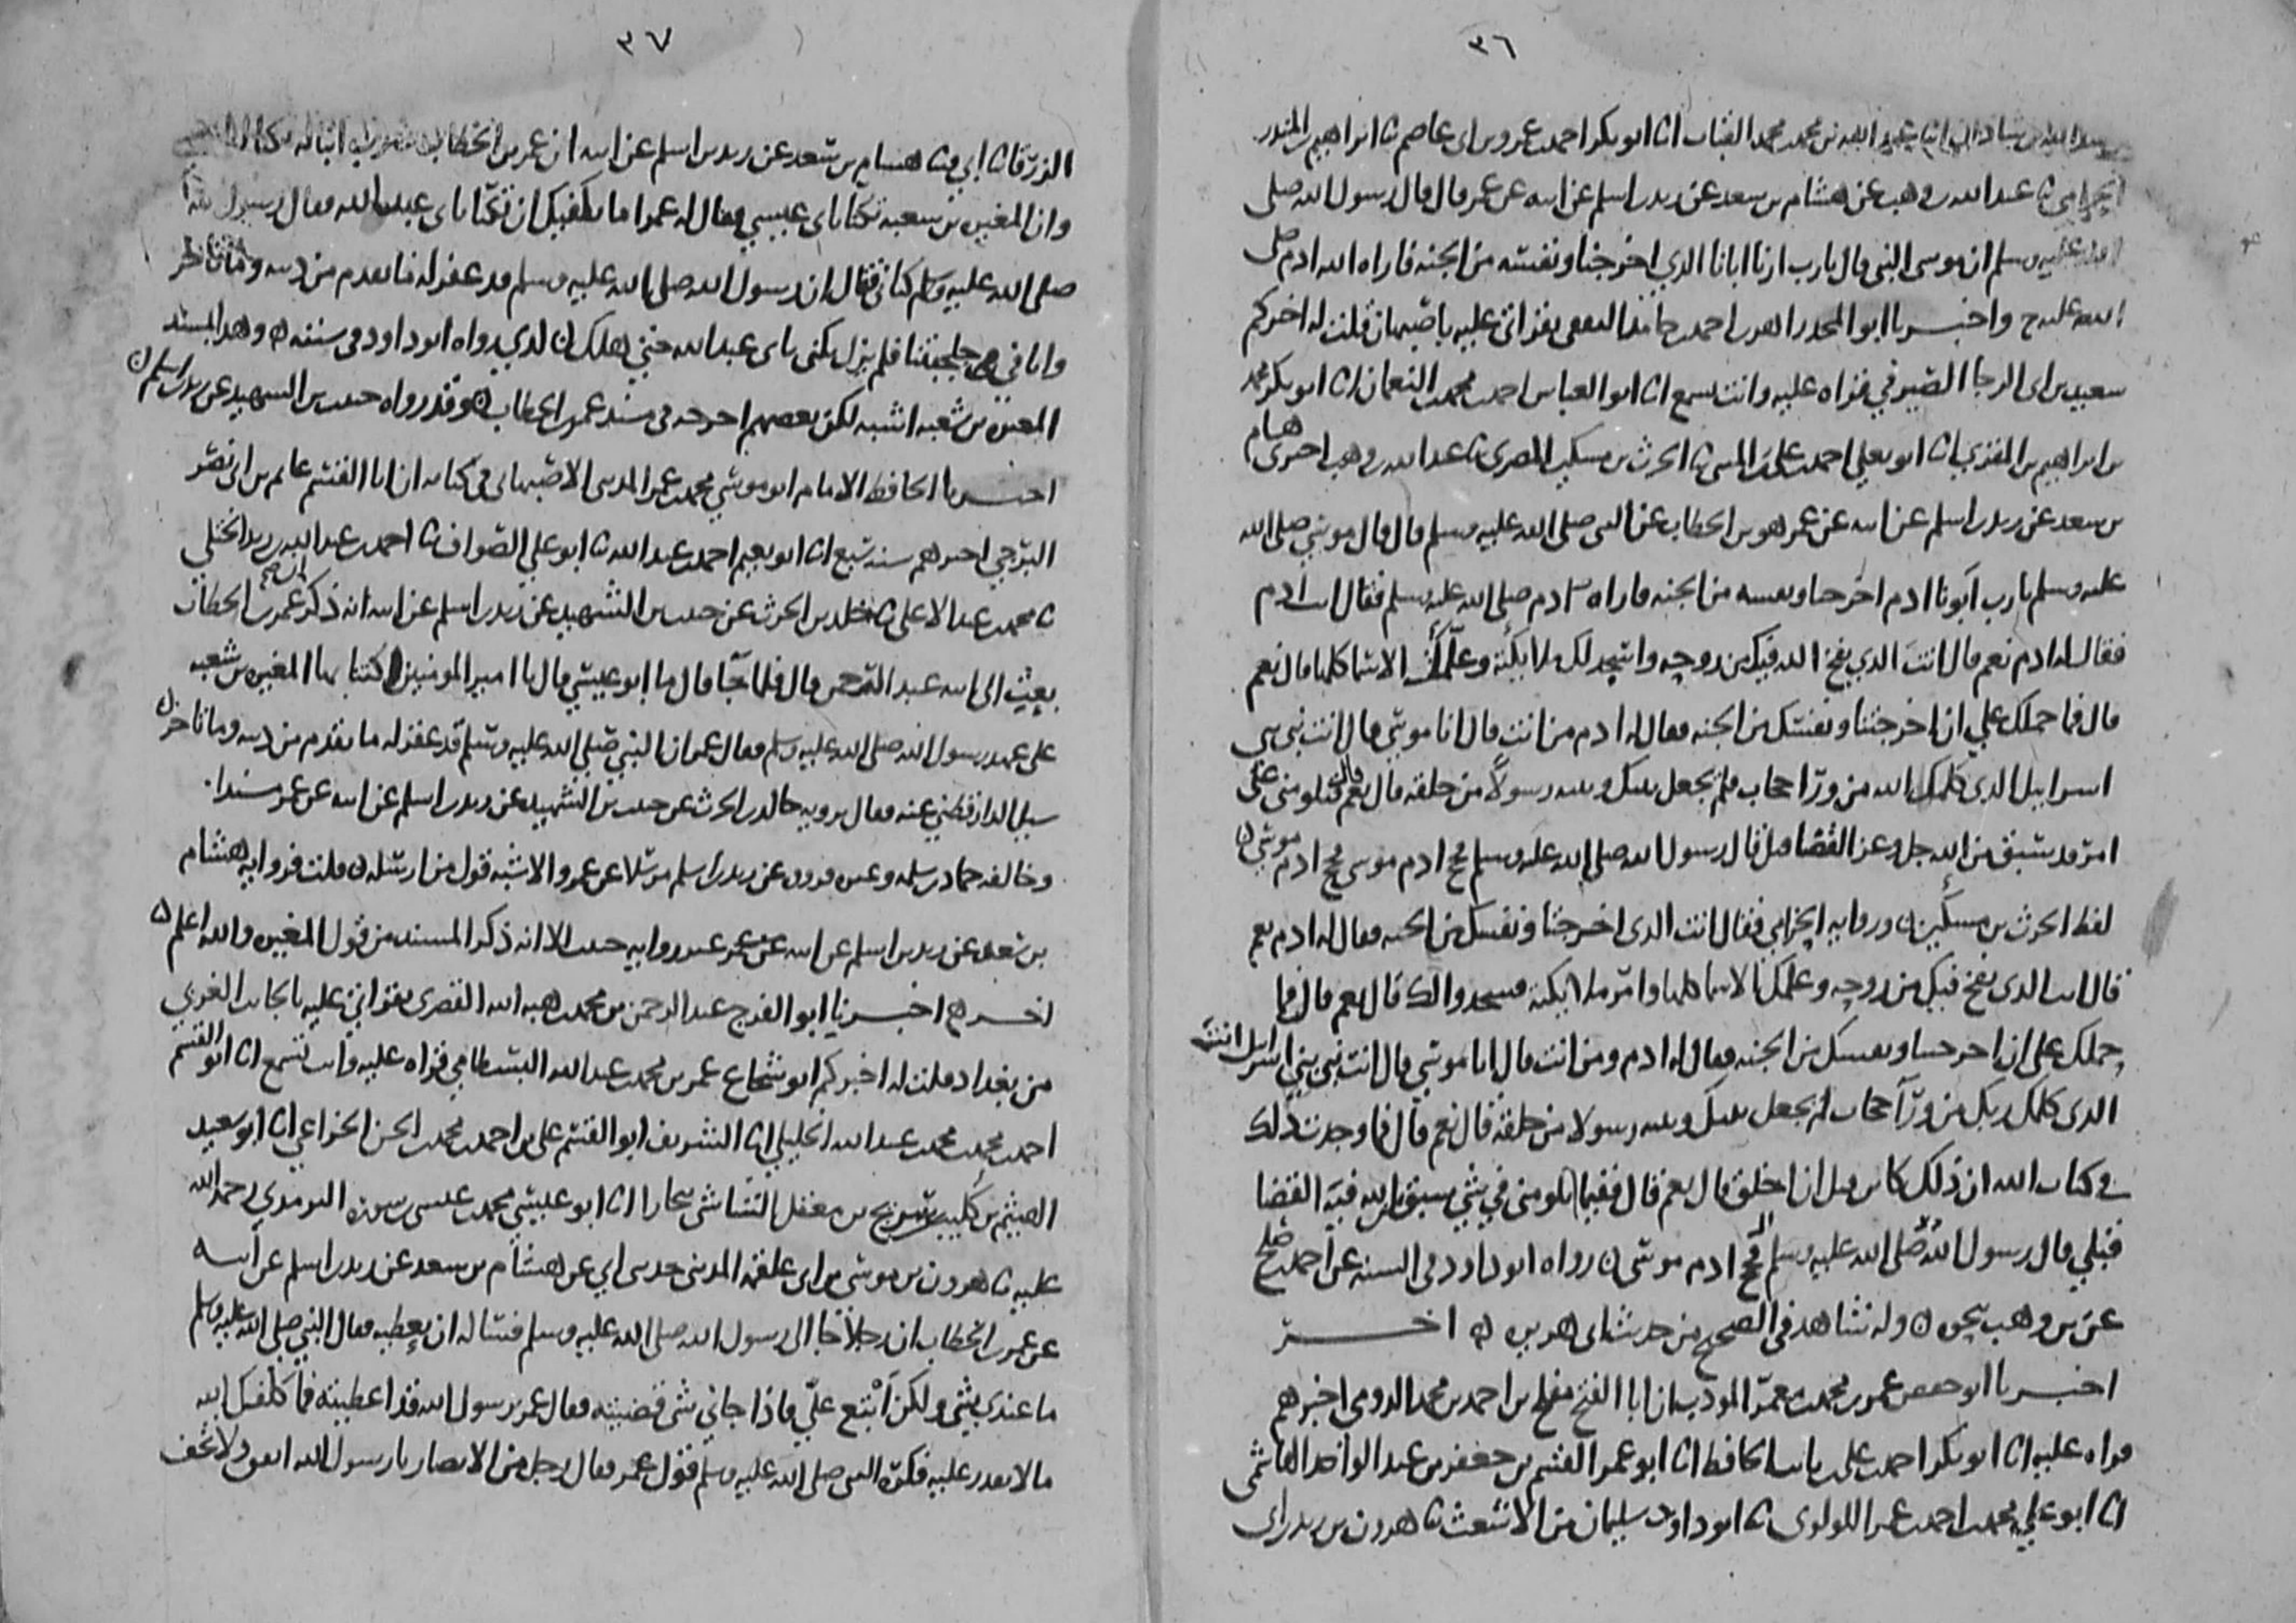 ٣٦
عبد الله بن محمد بن محمد القباب انا ابو بكر احمد بن عمرو بن ابي عاصم ثنا ابراهيم بن المنذر
الحزامي ثنا عبد الله بن وهب عن هشام بن سعد عن زيد بن اسلم عن ابيه عن عمر قال قال رسول الله صلى
الله عليه وسلم ان موسى النبي قال يارب ارنا ابانا الذي اخرجنا ونفسه من الجنه فاراه الله ادم صلى
الله عليه ح واخبرنا ابو احمد بن حامد الثقفي بقراتي عليه باصبهان قلت له اخبركم
سعيد بن ابي الرجا الصيرفي قراه عليه وانت تسمع انا ابو العباس احمد بن محمد بن النعمان انا ابو بكر محمد
بن ابراهيم بن المقري انا ابو يعلى احمد بن علي بن المثنى ثنا الحرث بن مسكين المصري ثنا عبد الله بن وهب اخبرني هشام
بن سعد عن زيد بن اسلم عن ابيه عن عمر هو بن الخطاب عن النبي صلى الله عليه وسلم قال قال موسى صلى الله
عليه وسلم يارب ابونا ادم اخرجنا ونفسه من الجنه فاراه ادم صلى الله عليه وسلم فقال انت ادم
فقال له ادم نعم قال انت الذي نفخ الله فيك من روحه واسجد لك ملايكته وعلمك الاسما كلها قال نعم
قال فما حملك علي ان اخرجتنا ونفسك من الجنه فقال له ادم من انت قال انا موسى قال انت نبي بني
اسرايل الذي كلمك الله من ورا حجاب فلم يجعل بينك وبينه رسولا من خلقه قال نعم قال تلومني على
امر قد سبق من الله جل وعز القضا قبل قال رسول الله صلى الله عليه وسلم فحج ادم موسى فحج ادم موسى
لفظ الحرث بن مسكين وروايه الحزامي فقال انت الذي اخرجتنا ونفسك من الجنه فقال له ادم نعم
قال انت الذي نفخ فيك من روحه وعلمك الاسما كلها وامر ملايكته فسجدوا لك قال نعم قال فما
حملك على ان اخرجتنا ونفسك من الجنه فقال له ادم ومن انت قال انا موسى قال انت نبي بني اسرايل انت
الذي كلمك ربك من ورا حجاب لم يجعل بينك وبينه رسولا من خلقه قال نعم قال فما وجدت ذلك
في كتاب الله ان ذلك كاين قبل ان اخلق قال نعم قال ففيما تلومني في شي سبق من الله فيه القضا
قبلي قال رسول الله صلى الله عليه وسلم فحج ادم موسى رواه ابو داود في السنه عن احمد بن صلح
عن بن وهب بنحوه وله شاهد في الصحيح من حديث ابي هريره اخر
اخبرنا ابو حفص عمر بن محمد بن معمر المودب ان ابا الفتح مفلح بن احمد بن محمد الدومي اخبرهم
قراه عليه انا ابو بكر احمد بن علي بن ثابت الحافظ انا ابو عمر القسم بن جعفر بن عبد الواحد الهاشمي
انا ابو علي محمد بن احمد بن عمر اللولوي ثنا ابو داود سليمان بن الاشعث ثنا هرون بن زيد بن ابي
٣٧
الزرقا ثنا ابي ثنا هشام بن سعد عن زيد بن اسلم عن ابيه ان عمر بن الخطاب ضرب ابنا له تكنا ابا عيسى
وان المغيره بن شعبه تكنا بابي عيسى فقال له عمر اما يكفيك ان تكنا بابي عبد الله فقال رسول الله
صلى الله عليه وسلم كناني فقال ان رسول الله صلى الله عليه وسلم قد غفر له ما تقدم من ذنبه وما تاخر
وانا في جلجتنا فلم يزل يكنى بابي عبد الله حتى هلك الذي رواه ابو داود في سننه وهذا بمسند
المغيره بن شعبه اشبه لكن بعضهم اخرجه في مسند عمر بن الخطاب وقد رواه حبيب بن الشهيد عن زيد بن اسلم
اخبرنا الحافظ الامام ابو موسى محمد بن عمر المديني الاصبهاني في كتابه ان ابا القسم غانم بن ابي نصر
البرجي اخبرهم سنه تسع انا ابو نعيم احمد بن عبد الله ثنا ابو علي الصواف ثنا احمد بن عبد الله
ثنا محمد بن عبد الاعلى ثنا خلد بن الحرث عن حبيب بن الشهيد عن زيد بن اسلم عن ابيه انه ذكر ان عمر بن الخطاب
بعث الى ابنه عبد الرحمن قال فلما جا قال ها ابو عيسى قال يا امير المومنين اكتنا بها المغيره بن شعبه
على عهد رسول الله صلى الله عليه وسلم فقال عمر ان النبي صلى الله عليه وسلم قد غفر له ما تقدم من ذنبه وما تاخر
سيل الدارقطني عنه فقال يرويه خالد بن الحرث عن حبيب بن الشهيد عن زيد بن اسلم عن ابيه عن عمر مسندا
وخالفه حماد بن سلمه وغير فرووه عن زيد بن اسلم مرسلا عن عمر والاشبه قول من ارسله قلت فروايه هشام
بن سعد عن زيد بن اسلم عن ابيه عن عمر غير روايه حبيب الا انه ذكر المسند من قول المغيره والله اعلم
اخر اخبرنا ابو الفرج عبد الرحمن بن محمد بن هبه الله القصري بقراتي عليه بالجانب الغربي
من بغداد قلت له اخبركم ابو شجاع عمر بن محمد بن عبد الله البسطامي قراه عليه وانت تسمع انا ابو القسم
احمد بن محمد بن محمد بن عبد الله الخليلي انا الشريف ابو القسم علي بن احمد بن محمد بن الحسن الخزاعي انا ابو سعيد
الهيثم بن كليب بن سريج بن معقل الشاشي ببخارا انا ابو عيسى محمد بن عيسى بن سوره الترمذي رحمه الله
عليه ثنا هرون بن موسى بن ابي علقمه المديني حدثني ابي عن هشام بن سعد عن زيد بن اسلم عن ابيه
عن عمر بن الخطاب ان رجلا جا الى رسول الله صلى الله عليه وسلم فساله ان يعطيه فقال النبي صلى الله عليه وسلم
ما عندي شي ولكن ابتع علي فاذا جاني شي قضيته فقال عمر يرسول الله قد اعطيته فما كلفك الله
ما لا تقدر عليه فكره النبي صلى الله عليه وسلم قول عمر فقال رجل من الانصار يا رسول الله انفق ولا تخف